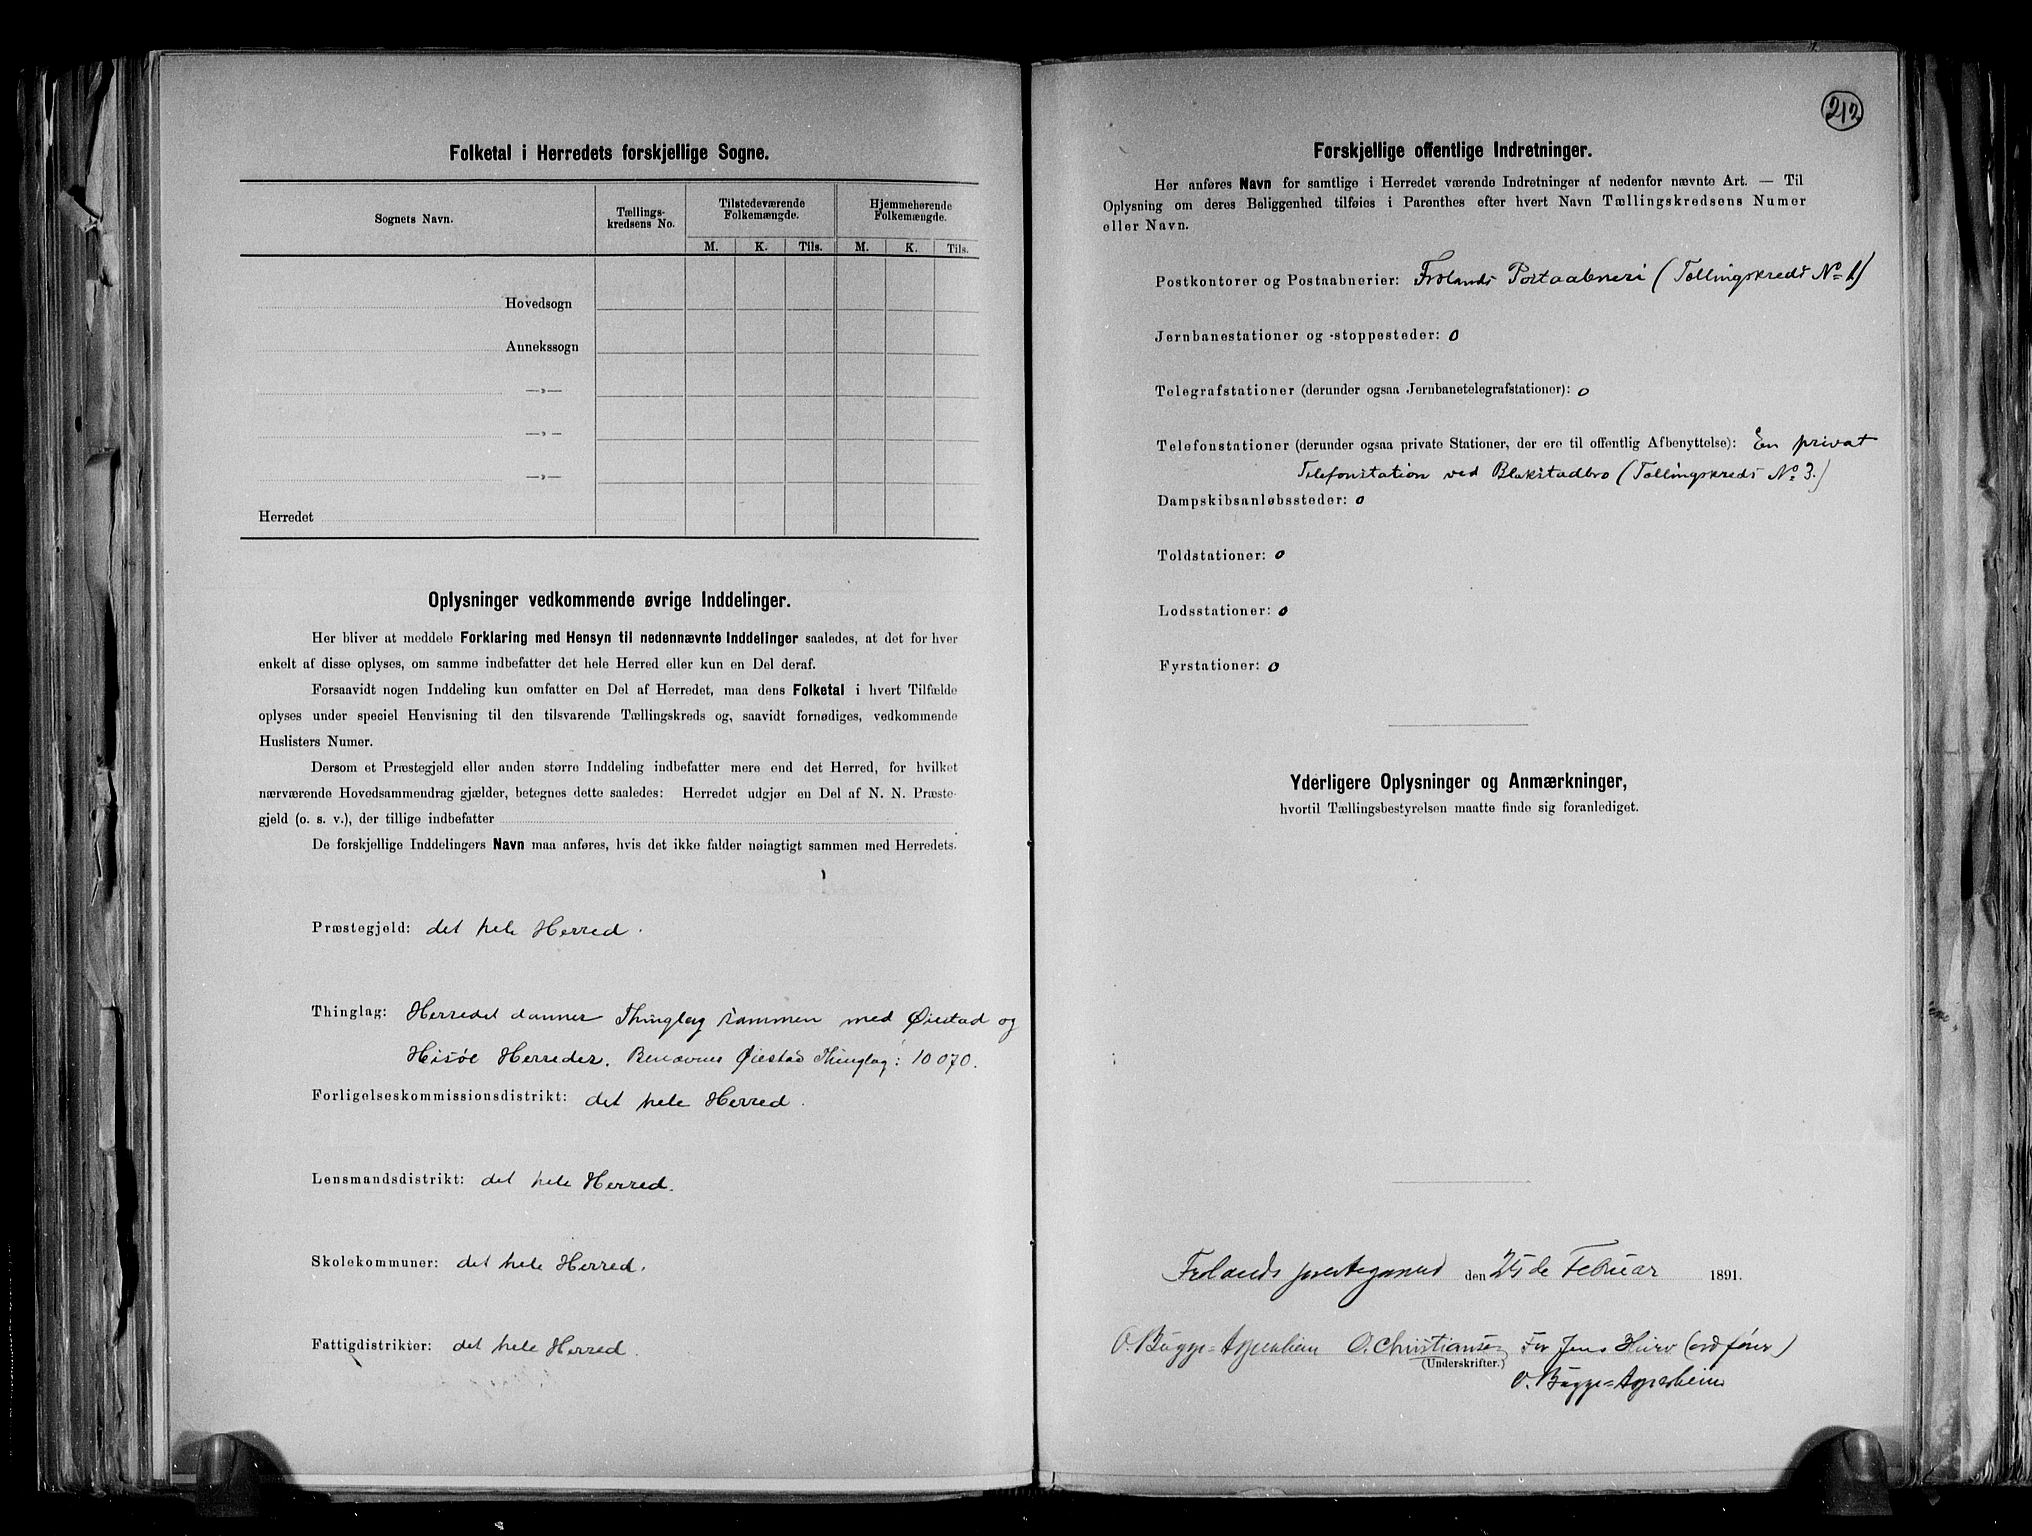 Folketal i Herredets forskjellige Sogne.
Sognets Navn.
Tællings-
kredsens No.
Tilstedeværende
Folkemængde.
Hjemmehørende
Folkemængde.
M. K. Tils. M. K. Tils.
Hovedsogn
Annekssogn
—„—
—„—
—„—
Herredet
Oplysninger vedkommende øvrige Inddelinger.
Her bliver at meddele Forklaring med Hensyn til nedennævnte Inddelinger saaledes, at det for hver
enkelt af disse oplyses, om samme indbefatter det hele Herred eller kun en Del deraf.
Forsaavidt nogen Inddeling kun omfatter en Del af Herredet, maa dens Folketal i hvert Tilfælde
oplyses under speciel Henvisning til den tilsvarende Tællingskreds og, saavidt fornødiges, vedkommende
Huslisters Numer.
Dersom et Præstegjeld eller anden større Inddeling indbefatter mere end det Herred, for hvilket
nærværende Hovedsammendrag gjælder, betegnes dette saaledes: Herredet udgjør en Del af N. N. Præste-
gjeld (o. s. v.), der tillige indbefatter
De forskjellige Inddelingers Navn maa anføres, hvis det ikke falder nøiagtigt sammen med Herredets.
Præstegjeld: det hele Herred.
Thinglag: Herredet danner Thinglag sammen med Øiestad og
Hisøe Herreder. Benævnes Øiestad Thinglag: 10 070.
Forligelseskommissionsdistrikt: det hele Herred.
Lensmandsdistrikt: det hele Herred.
Skolekommuner: det hele Herred.
Fattigdistrikter: det hele Herred.
212
Forskjellige offentlige Indretninger.
Her anføres Navn for samtlige i Herredet værende Indretninger af nedenfor nævnte Art. — Til
Oplysning om deres Beliggenhed tilføies i Parenthes efter hvert Navn Tællingskredsens Numer
eller Navn.
Postkontorer og Postaabnerier: Frolands Postaabneri (Tællingskreds No 1)
Jernbanestationer og -stoppesteder: 0
Telegrafstationer (derunder ogsaa Jernbanetelegrafstationer): 0
Telefonstationer (derunder ogsaa private Stationer, der ere til offentlig Afbenyttelse): En privat
Telefonstation ved Blakstadbro (Tællingskreds No 3.)
Dampskibsanløbssteder: 0
Toldstationer: 0
Lodsstationer: 0
Fyrstationer: 0
Yderligere Oplysninger og Anmærkninger,
hvortil Tællingsbestyrelsen maatte finde sig foranlediget.
Frolands præstegaard den 25de Februar 1891.
O. Bugge-Asperheim O. Christiansen For Jens Hurv (ordfører)
(Underskrifter.)
O. Bugge-Asperheim